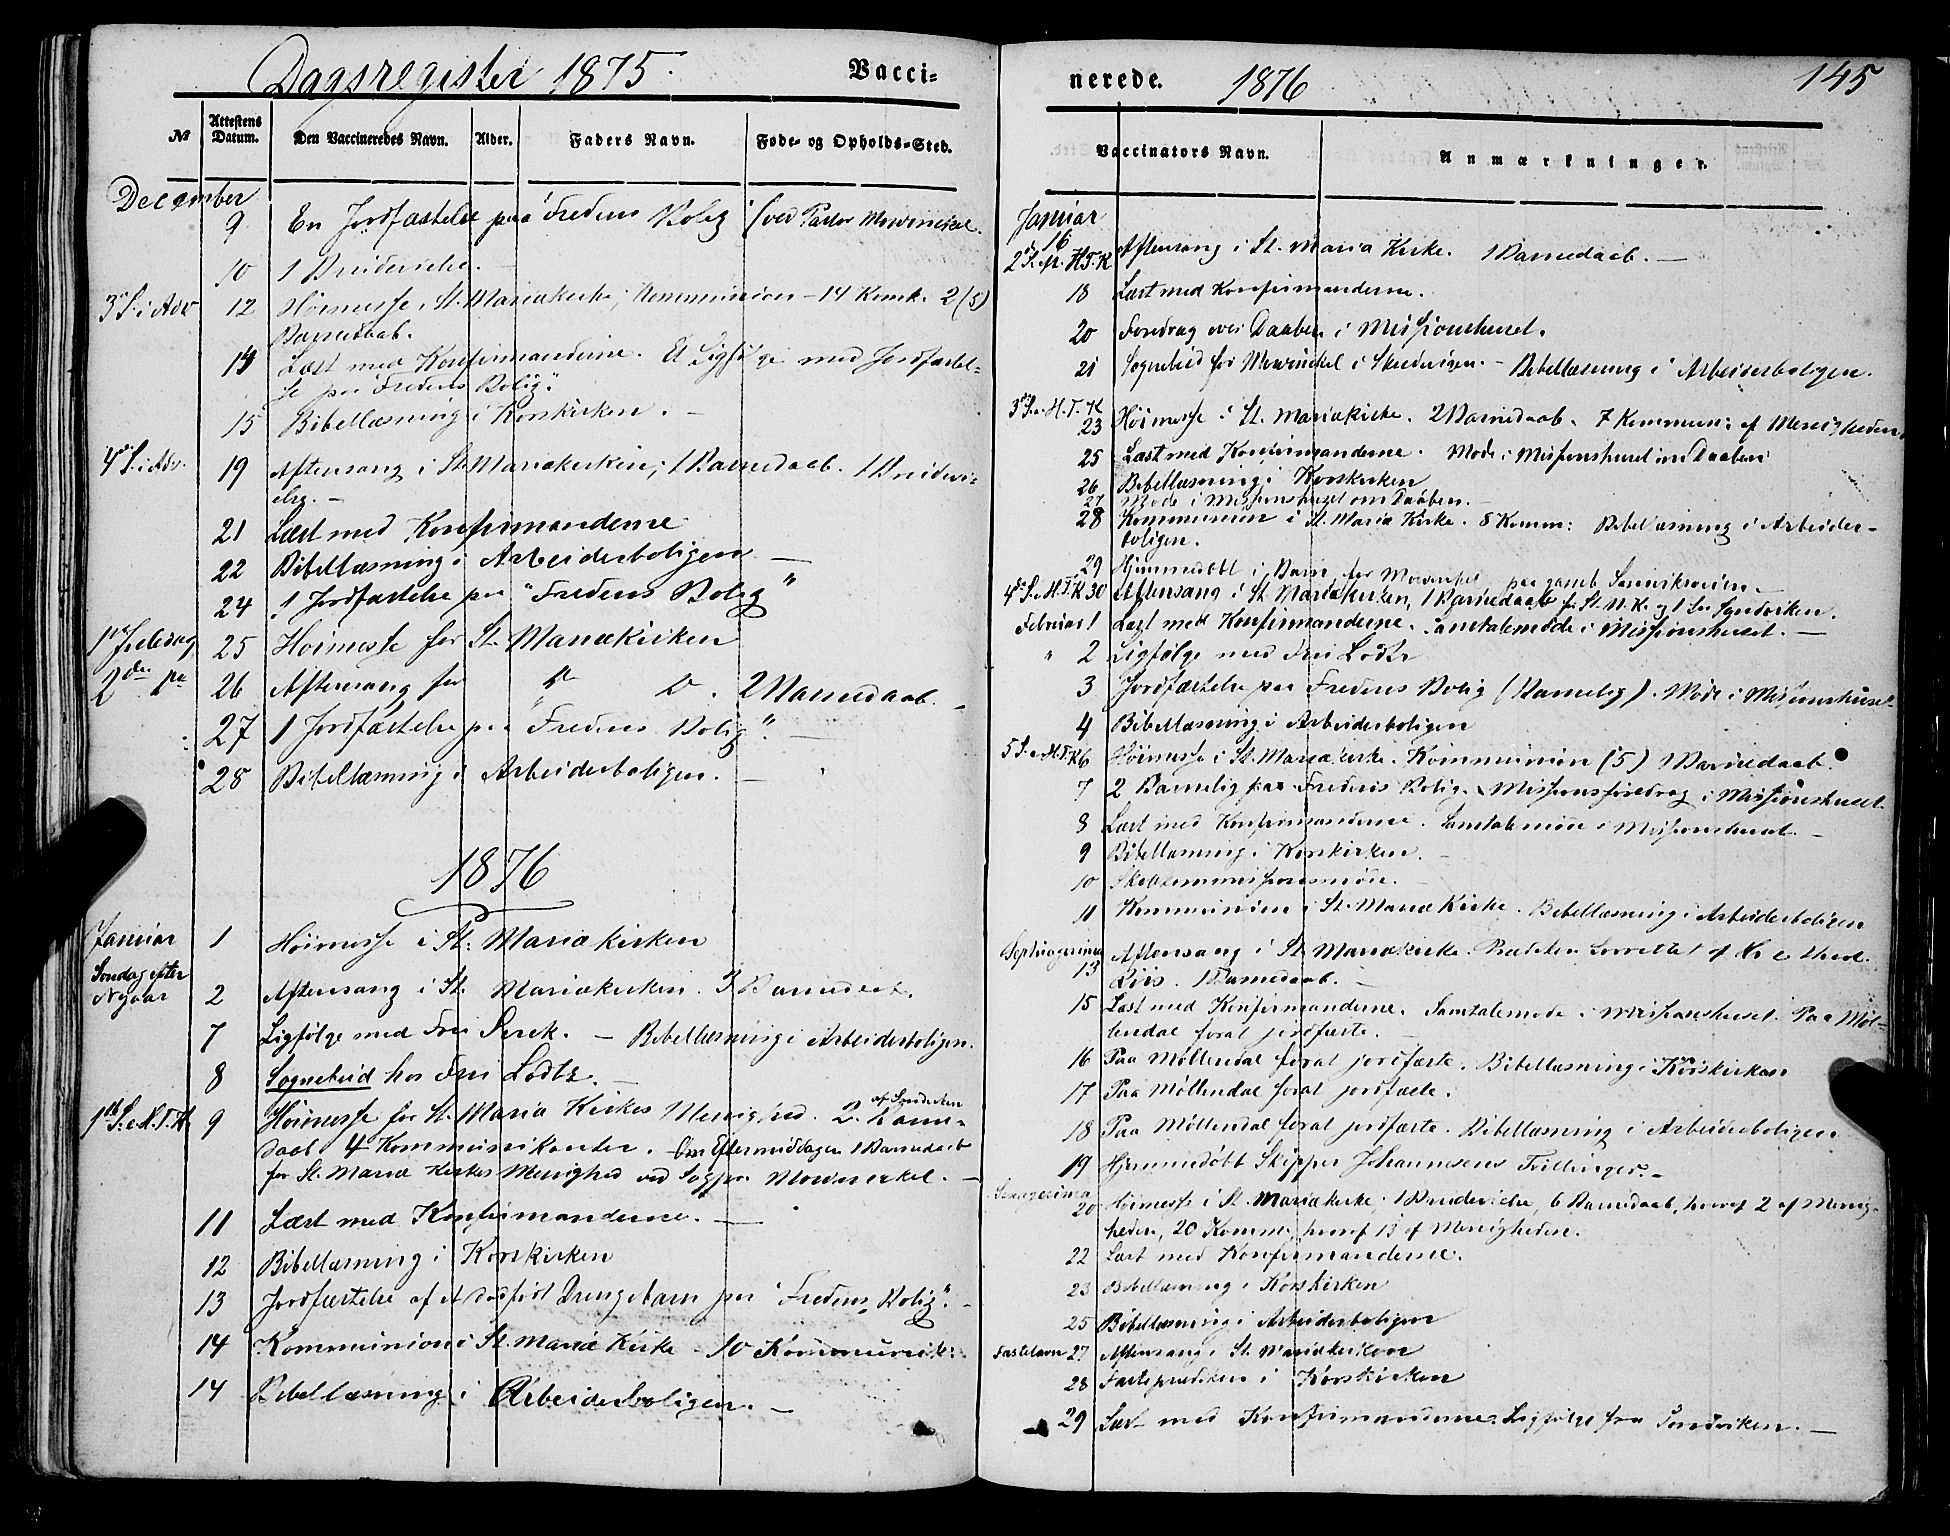 Dagsregister 1875. Vacci-
№ Attestens Datum. Den Vaccineredes Navn. Alder. Faders Navn. Føde- og Opholds-Sted.
December
9 En Jordfæstelse paa "Fredens Bolig" (ved Pastor Mowinckel.
10 1 Brudevielse.
3die S. i Adv 12 Høimesse i St. Mariækirke; Kommunion - 14 Komk. 2 (5)
Barnedaab.
14 Læst med Konfirmanderne. Et Ligfølge med Jordfæstel-
se paa "Fredens Bolig".
15 Bibellæsning i Korskirken. -
4de S. i Adv. 19 Aftensang i St. Mariækirken; 1 Barnedaab. 1 Brudevi-
else. -
21 Læst med Konfirmanderne
22 Bibellæsning i Arbeiderboligen -
24 1 Jordfæstelse paa "Fredens Bolig"
1ste Juledag 25 Høimesse for St. Mariækirken
2den Do 26 Aftensang for Do Do. 2 Barnedaab. -
27 1 Jordfæstelse paa "Fredens Bolig". -
28 Bibellæsning i Arbeiderboligen. -
1876
Januar 1 Høimesse i St. Mariækirken
Søndag efter
Nytaar 2 Aftensang i St. Mariækirken. 3 Barnedaab.
7 Ligfølge med Fru Serck. - Bibellæsning i Arbeiderboligen.
8 Sognebud hos Fru Lodtz. -
af Sandviken
1ste S. e. H.T.K. 9 Høimesse for St. Mariæ Kirkes Menighed. 2 Barne-
daab 4 Kommunikanter. Om Eftermiddagen 1 Barnedaab
for St. Mariæ Kirkes Menighed ved Sogpr. Mowinckel. -
11 Læst med Konfirmanderne. -
12 Bibellæsning i Korskirken
13 Jordfæstelse af et dødfødt Drengebarn paa "Fredens Bolig". -
14 Kommunion i St. Mariæ Kirke - 10 Kommunik:
14 Bibellæsning i Arbeiderboligen. -
nerede. 1876 145
Vaccinators Navn. Anmærkninger.
Januar
d. 16
2 S. e. H.T.K Aftensang i St. Mariæ Kirke. 1 Barnedaab. -
18 Læst med Konfirmanderne.
20 Foredrag over Daaben i Missionshuset.
21 Sognebud for Mowinckel i Skudevigen. - Bibellæsning i Arbeiderboligen.
3die S. e. H.T.K
23 Høimesse i St. Mariækirke. 2 Barnedaab. 7 Kommun: af Menigheden
25 Læst med Konfirmanderne. Møde i Missionshuset om Daaben
26 Bibellæsning i Korskirken
27 Møde i Missionshuset om Daaben. -
28 Kommunion i St. Mariæ Kirke. 8 Komm: Bibellæsning i Arbeider-
boligen.
29 Hjemmedøbt 1 Barn for Mowinckel paa gamle Sandviksveien. -
4de S. e. H.T.K 30 Aftensang i St. Mariækirken, 1 Barnedaab for St. M. K. og 1 for Sandviken.
Februar 1 Læst med Konfirmanderne. Samtalemøde i Missionshuset. -
" 2 Ligfølge med Fru Lodtz
3 Jordfæstelse paa Fredens Bolig (Barnelig). Møde i Missionshuset.
4 Bibellæsning i Arbeiderboligen
5 S. e. H.T.K 6 Høimesse i St. Mariækirke. Kommunion (5) 1 Barnedaab.
7 2 Barnelig paa Fredens Bolig. Missionsforedrag i Missionshuset.
8 Læst med Konfirmanderne. Samtalemøde i Missionshuset. -
9 Bibellæsning i Korskirken. -
10 Skolekommissionsmøde. -
11 Kommunion i St. Mariæ Kirke. Bibellæsning i Arbeiderboligen
Septuagesima
13 Aftensang i St. Mariækirke. Prædiken forrettet af
1 Barnedaab. -
15 Læst med Konfirmanderne. Samtalemøde i Missionshuset. Paa Møl-
lendal forat jordfæste. -
16 Paa Møllendal forat jordfæste. Bibellæsning i Korskirken
17 Paa Møllendal forat jordfæste.
18 Paa Møllendal forat jordfæste. Bibellæsning i Arbeiderboligen
19 Hjemmedøbt Skipper Johannesens Tvillinger. -
Sexagesima
20 Høimesse i St. Mariækirke; 1 Brudevielse, 6 Barnedaab, hvoraf 2 af Menig-
heden, 20 Komm. hvoraf 13 af Menigheden.
22 Læst med Konfirmanderne.
23 Bibellæsning i Korskirken
25 Bibellæsning i Arbeiderboligen
Fastelavn 27 Aftensang i St. Mariækirken
28 Fasteprædiken i Korskirken
29 Læst med Konfirmanderne. Ligfølge fra Sandviken. -